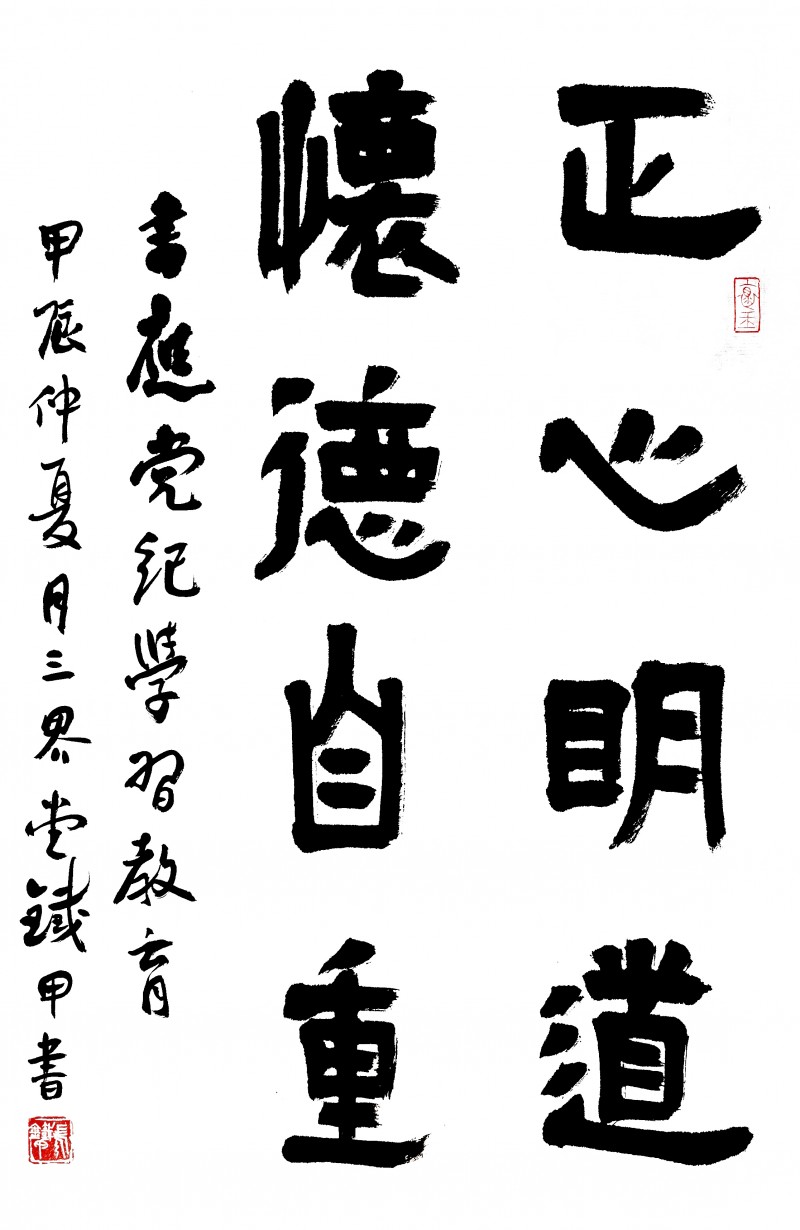 正心明道
懷德自重
書應党紀學習教育
甲辰仲夏月三界堂鐵甲書